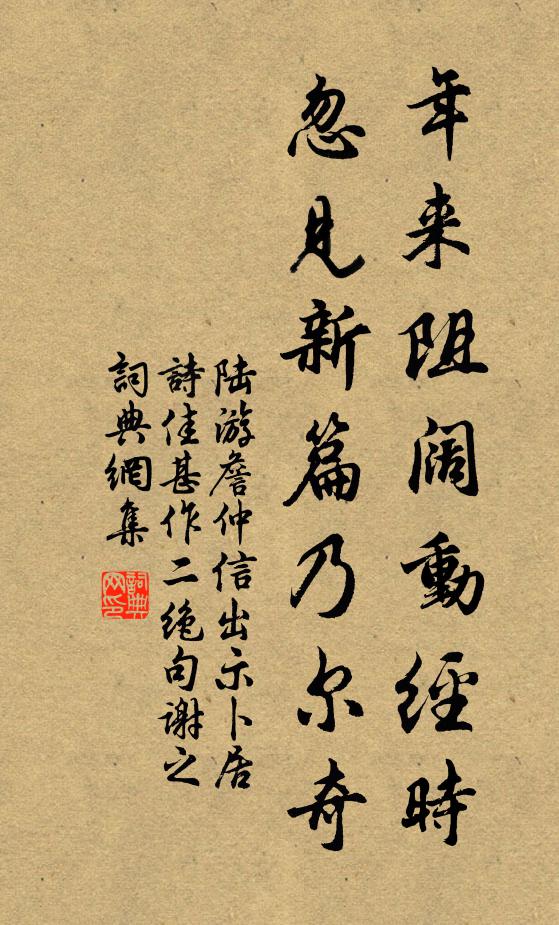 年来阻阔動經時
忽見新篇乃尔奇
陆游詹仲信出示卜居
詩佳甚作二绝句谢之
詞典網集
詞典网印